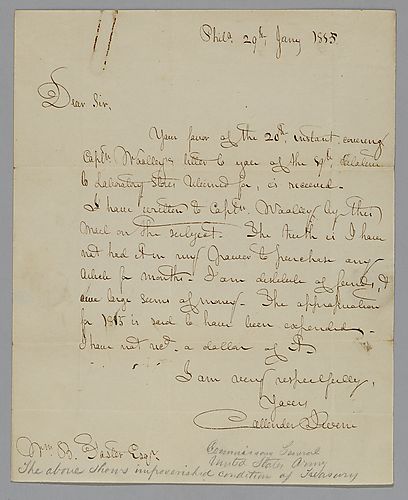 Phila. 29th. Jany 1815
Dear Sir,
Your favor of the 20th. instant, covering
Captn. Woolley's letter to you of the 9th. relative
to Laboratory Stores returned for, is received.
I have written to Captn. Woolley by this
Mail on the subject. The truth is I have
not had it in my power to purchase any
Article for months. I am destitute of funds, &
owe large sums of money. The appropriation
for 1815 is said to have been expended.
I have not recd. a dollar of it.
I am very respectfully,
Yours
Callender Irvine
Wm. B. Foster Esqr.
Commissary General
United States Army
The above shows impoverished condition of Treasury